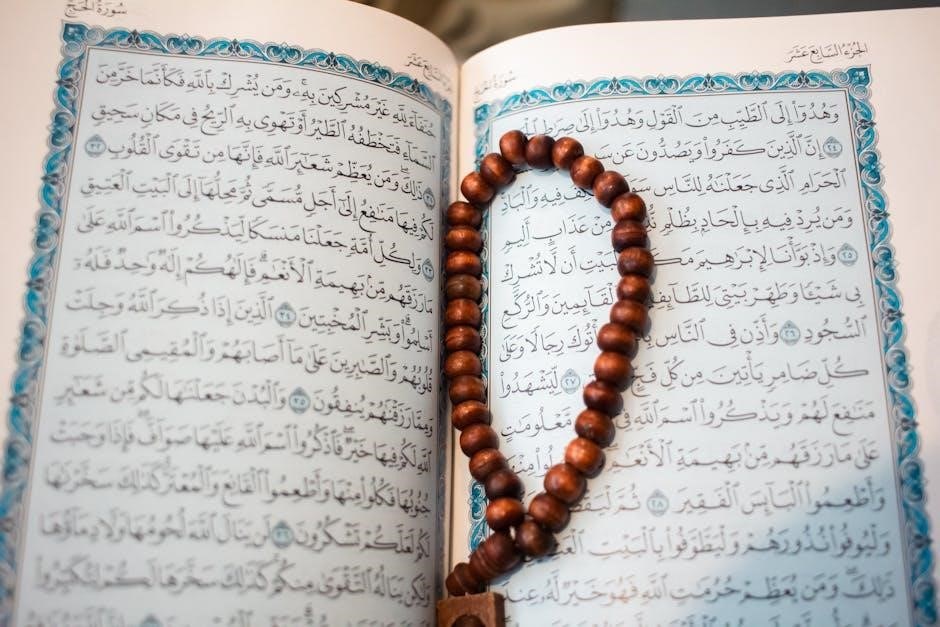 الجُزْءُ السَّابِعَ عَشَرَ سُورَةُ الحَجِّ
وَهُدُوٓاْ إِلَى ٱلطَّيِّبِ مِنَ ٱلْقَوْلِ وَهُدُوٓاْ إِلَىٰ صِرَٰطِ
٢٤ إِنَّ ٱلَّذِينَ كَفَرُواْ وَيَصُدُّونَ عَن
ٱلْحَرَامِ ٱلَّذِي جَعَلْنَٰهُ لِلنَّاسِ فِيهِ وَٱلْبَادِ
وَمَن يُرِدْ فِيهِ بِإِلْحَادِۭ بِظُلْمٖ مِنْ عَذَابٍ أَلِيمٖ
٢٥ وَإِذْ بَوَّأْنَا لِإِبْرَٰهِيمَ أَن لَّا تُشْرِكْ
بِي شَيْـٔٗا وَطَهِّرْ بَيْتِيَ لِلطَّآئِفِينَ وَٱلْقَآئِمِينَ وَٱلرُّكَّعِ
ٱلسُّجُودِ ٢٦ وَأَذِّن فِي ٱلنَّاسِ يَأْتُوكَ رِجَالٗا وَعَلَىٰ
كُلِّ ضَامِرٖ يَأْتِينَ مِن كُلِّ فَجٍّ ٢٧ لِّيَشْهَدُواْ
مَنَٰفِعَ لَهُمْ وَيَذْكُرُواْ ٱسْمَ ٱللَّهِ فِيٓ مَّعْلُومَٰتٍ
عَلَىٰ مَا رَزَقَهُم مِّنۢ بَهِيمَةِ ٱلْأَنْعَٰمِ مِنْهَا
وَأَطْعِمُواْ ٱلْبَآئِسَ ٱلْفَقِيرَ ٢٨ ثُمَّ لْيَقْضُواْ
وَلْيُوفُواْ نُذُورَهُمْ وَلْيَطَّوَّفُواْ بِٱلْبَيْتِ
ذَٰلِكَۖ وَمَن يُعَظِّمْ حُرُمَٰتِ ٱللَّهِ فَهُوَ خَيْرٞ لَّهُۥ عِندَ
سُورَةُ الحَجِّ
حُنَفَآءَ لِلَّهِ غَيْرَ مُشْرِكِينَ بِهِۦۚ وَمَن يُشْرِكْ بِٱللَّهِ فَكَأَنَّمَا خَرَّ مِنَ
ٱلسَّمَآءِ فَتَخْطَفُهُ ٱلطَّيْرُ أَوْ تَهْوِي بِهِ ٱلرِّيحُ فِي مَكَانٖ سَحِيقٖ
ذَٰلِكَۖ وَمَن يُعَظِّمْ شَعَٰٓئِرَ ٱللَّهِ فَإِنَّهَا مِن تَقْوَى ٱلْقُلُوبِ ٣٢
لَكُمْ فِيهَا مَنَٰفِعُ إِلَىٰٓ أَجَلٖ مُّسَمّٗى ثُمَّ مَحِلُّهَآ إِلَى ٱلْبَيْتِ ٱلْعَتِيقِ
٣٣ وَلِكُلِّ أُمَّةٖ جَعَلْنَا مَنسَكٗا لِّيَذْكُرُواْ ٱسْمَ ٱللَّهِ عَلَىٰ
مَا رَزَقَهُم مِّنۢ بَهِيمَةِ ٱلْأَنْعَٰمِۗ فَإِلَٰهُكُمْ إِلَٰهٞ وَٰحِدٞ فَلَهُۥٓ
أَسْلِمُواْۗ وَبَشِّرِ ٱلْمُخْبِتِينَ ٣٤ ٱلَّذِينَ إِذَا ذُكِرَ ٱللَّهُ وَجِلَتْ
قُلُوبُهُمْ وَٱلصَّٰبِرِينَ عَلَىٰ مَآ أَصَابَهُمْ وَٱلْمُقِيمِي ٱلصَّلَوٰةِ
وَمِمَّا رَزَقْنَٰهُمْ يُنفِقُونَ ٣٥ وَٱلْبُدْنَ جَعَلْنَٰهَا لَكُم مِّن شَعَٰٓئِرِ
ٱللَّهِ لَكُمْ فِيهَا خَيْرٞۖ فَٱذْكُرُواْ ٱسْمَ ٱللَّهِ عَلَيْهَا صَوَآفَّۖ فَإِذَا وَجَبَتْ
جُنُوبُهَا فَكُلُواْ مِنْهَا وَأَطْعِمُواْ ٱلْقَانِعَ وَٱلْمُعْتَرَّۚ كَذَٰلِكَ سَخَّرْنَٰهَا
لَكُمْ لَعَلَّكُمْ تَشْكُرُونَ ٣٦ لَن يَنَالَ ٱللَّهَ لُحُومُهَا وَلَا دِمَآؤُهَا
وَلَٰكِن يَنَالُهُ ٱلتَّقْوَىٰ مِنكُمْۚ كَذَٰلِكَ سَخَّرَهَا لَكُمْ لِتُكَبِّرُواْ